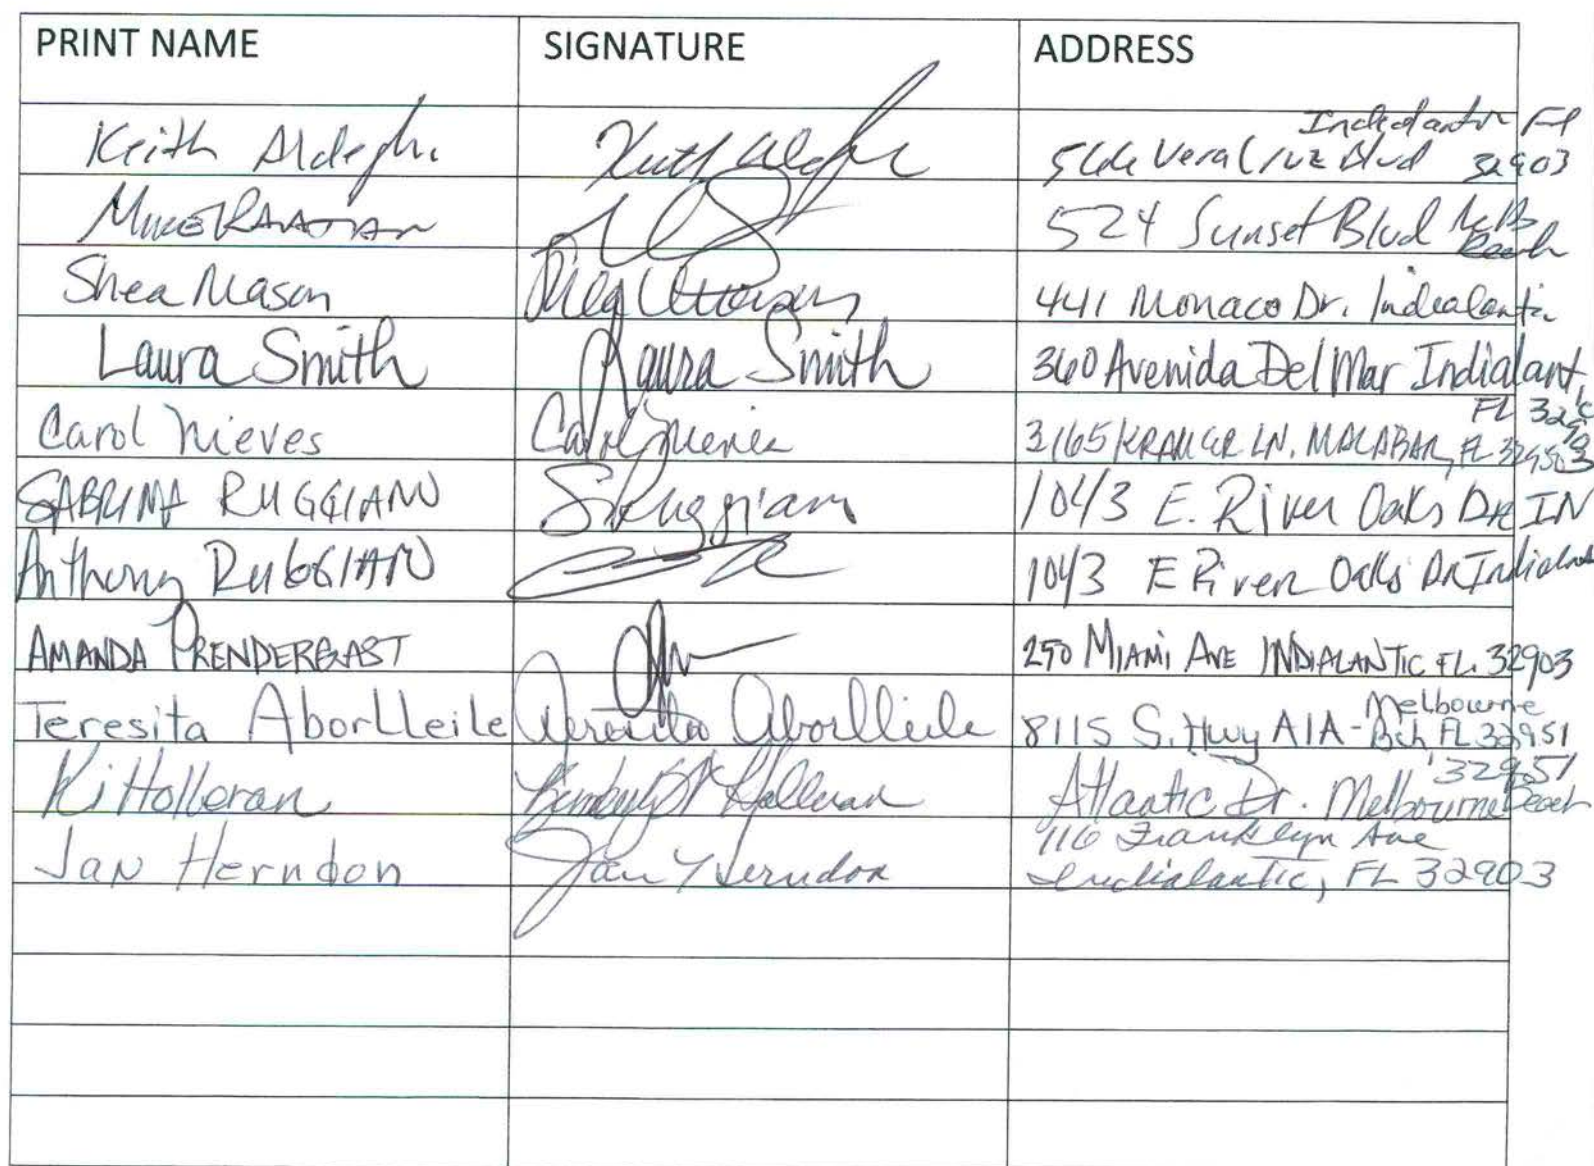 PRINT NAME SIGNATURE ADDRESS
Indialantic Fl
Keith Aldeghi Vera Cruz Blvd 32903
Mike 524 Sunset Blvd Melb
Beach
Shea Mason 441 Monaco Dr. Indialantic
Laura Smith Laura Smith 360 Avenida Del Mar Indialantic
FL 32903
Carol Nieves Carol Nieves 3165 KRAMER LN. MALABAR, FL
SABRINA RUGGIANO SRuggiano 1043 E. River Oaks DR IN
Anthony RUGGIANO 1043 E River Oaks DR Indialan
AMANDA PRENDERGAST 250 MIAMI AVE INDIALANTIC FL. 32903
Melbourne
Teresita AborLLeile Teresita Aborlleile 8115 S. Hwy A1A - Bch FL 32951
32951
Ki Holleran Kimberly Holleran Atlantic Dr. Melbourne Beach
116 Franklyn Ave
Jan Herndon Jan Y Herndon Indialantic, FL 32903